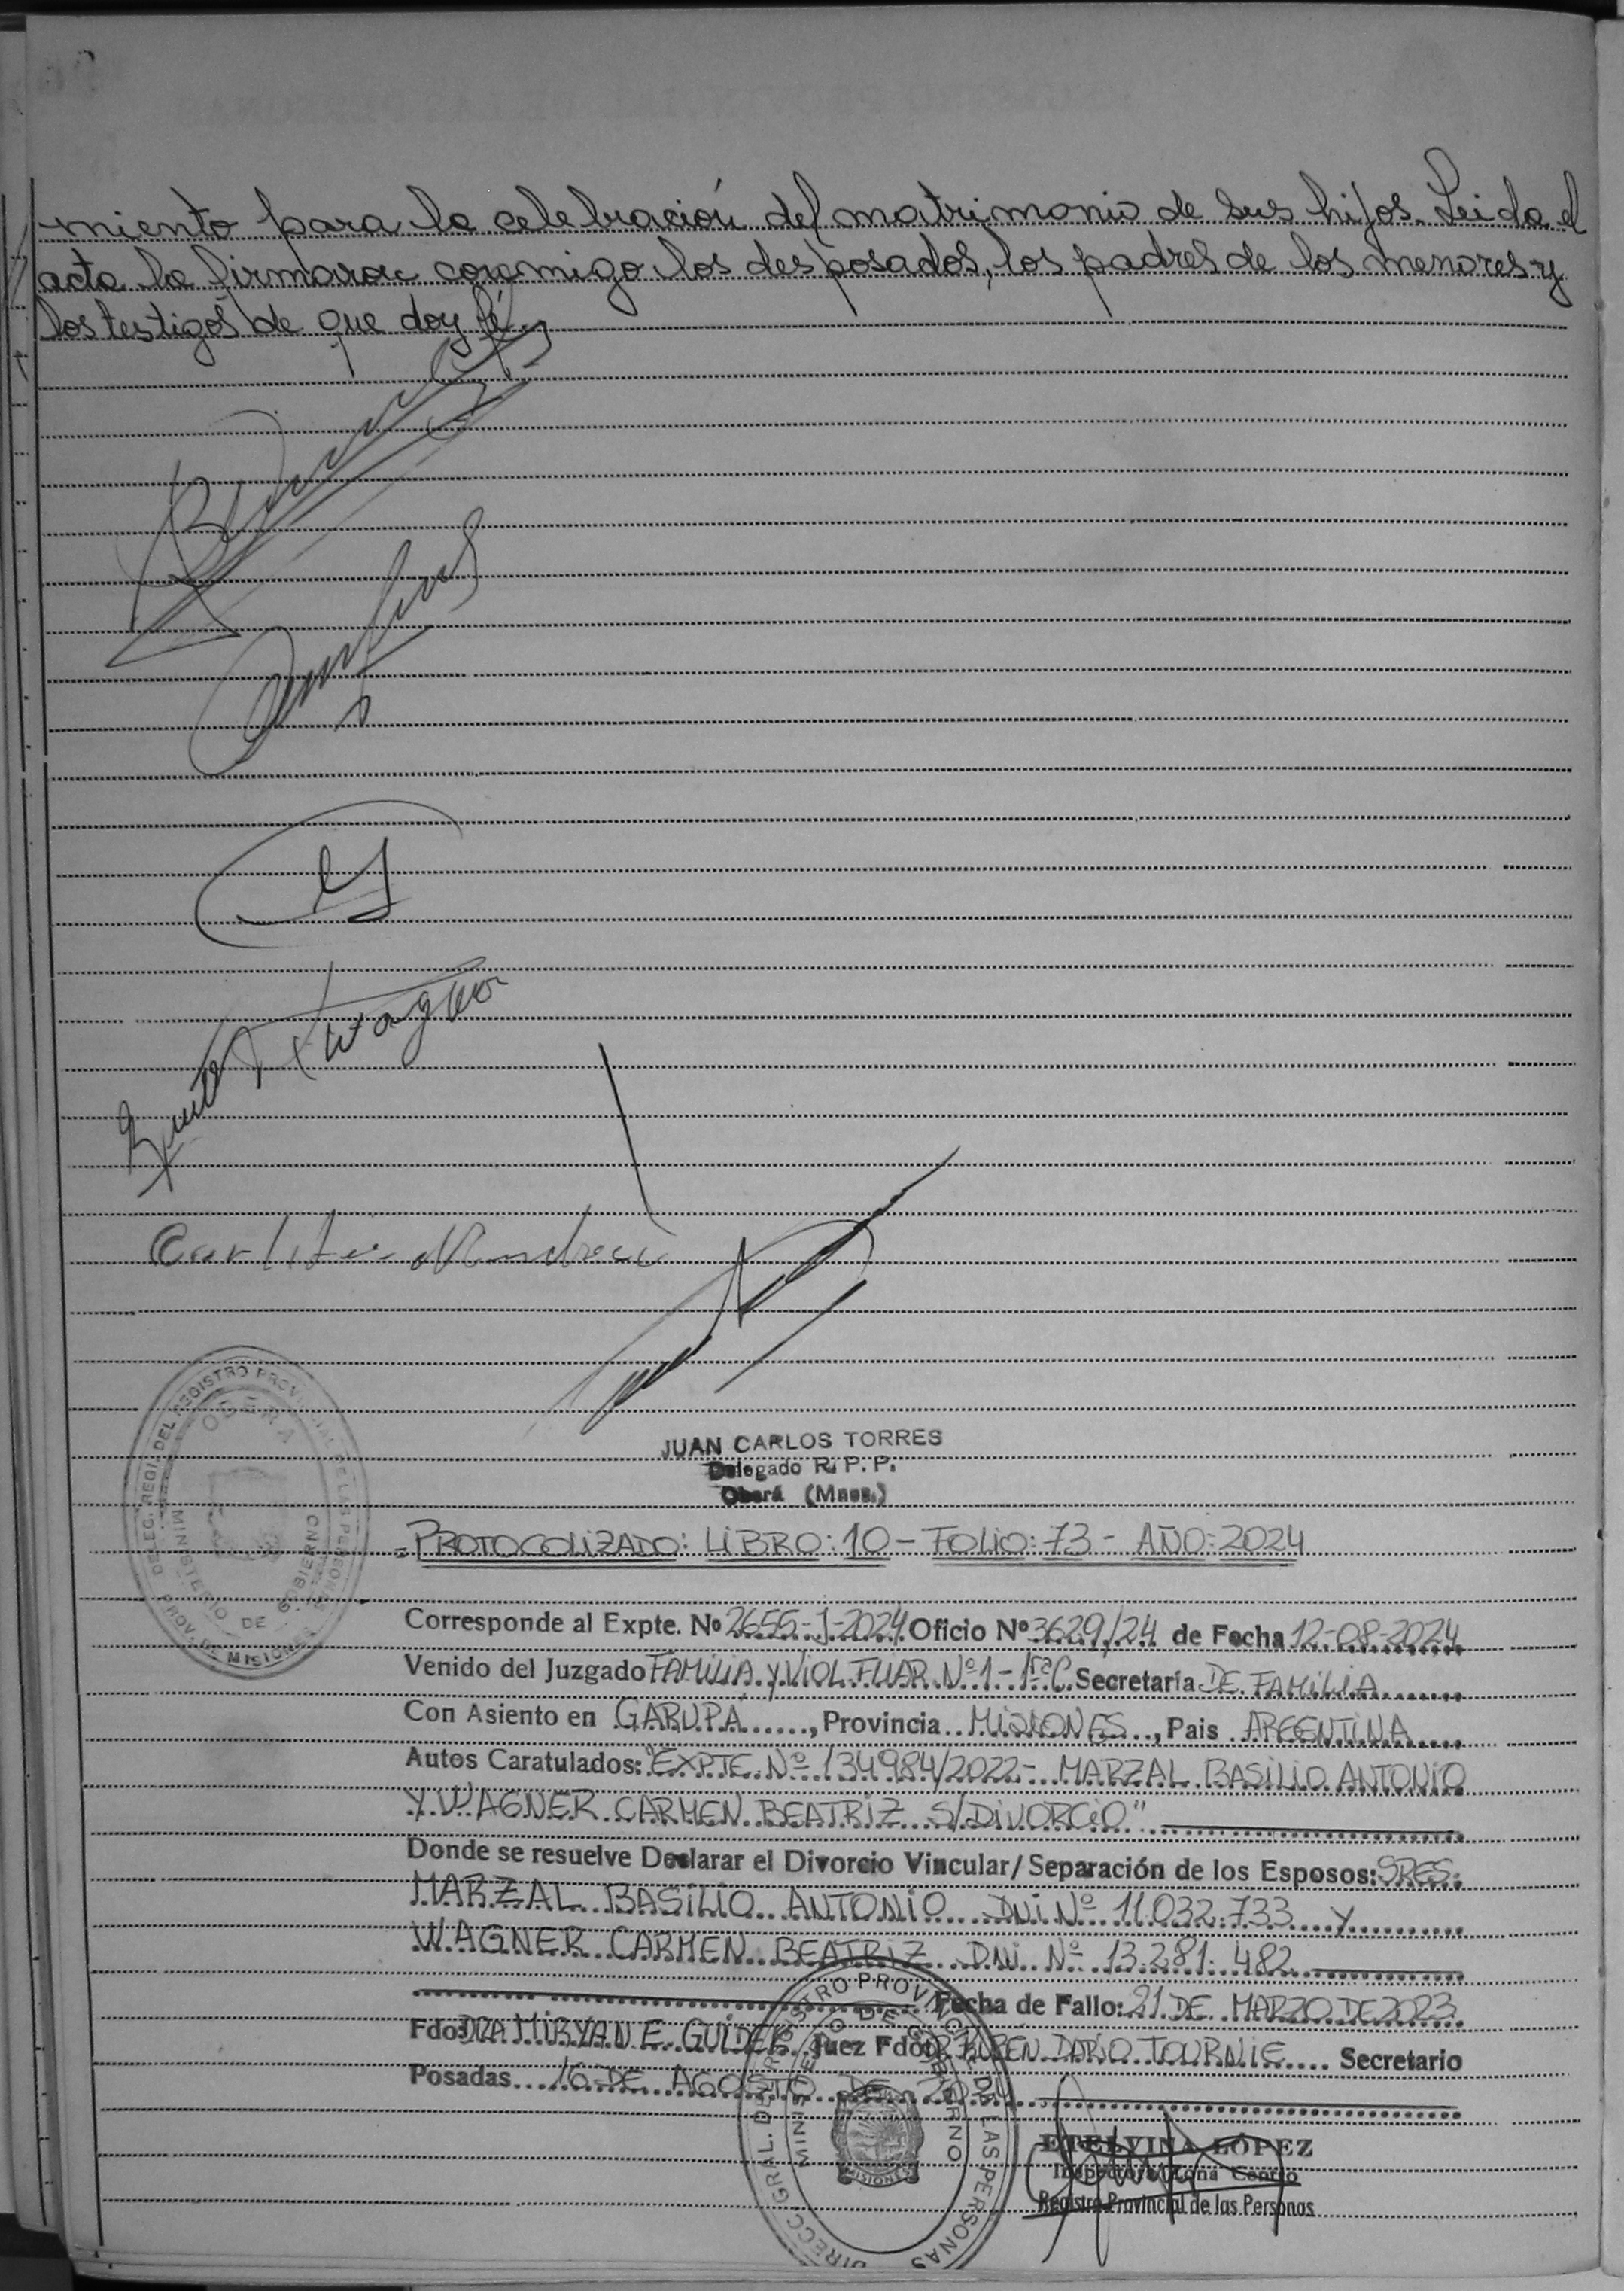 miento para la celebración del matrimonio de sus hijos. Leida el
acta la firmaron conmigo los desposados, los padres de los menores y
los testigos de que doy fé.
Wagner
JUAN CARLOS TORRES
Delegado R. P. P.
Oberá (Mnes.)
DELEG. REGL. DEL REGISTRO PROVINCIAL DE LAS PERSONAS
OBERA
MINISTERIO DE GOBIERNO
PROV. DE MISIONES
PROTOCOLIZADO: LIBRO: 10 - FOLIO: 73 - AÑO: 2024
Corresponde al Expte. Nº 2655-J-2024 Oficio Nº 3629/24 de Fecha 12-08-2024
Venido del Juzgado FAMILIA Y VIOL. FLIAR. Nº 1 - 1ra C. Secretaría DE FAMILIA
Con Asiento en GARUPÁ, Provincia MISIONES, Pais ARGENTINA
Autos Caratulados: "EXPTE. Nº 134984/2022 - MARZAL BASILIO ANTONIO
Y WAGNER CARMEN BEATRIZ S/DIVORCIO"
Donde se resuelve Declarar el Divorcio Vincular/Separación de los Esposos: SRES.
MARZAL BASILIO ANTONIO DNI Nº 11.032.733 Y
WAGNER CARMEN BEATRIZ DNI Nº 13.281.482
Fecha de Fallo: 21 DE MARZO DE 2023
Fdo: DRA MIRYAN E. GUIDEK Juez Fdo: DR. RUBÉN DARÍO TOURNIE Secretario
Posadas 16 DE AGOSTO DE
DIRECC. GRAL. DE REGISTRO PROVINCIAL DE LAS PERSONAS
MINISTERIO DE GOBIERNO
MISIONES
ETELVINA LÓPEZ
Inspectora Zona Centro
Registro Provincial de las Personas